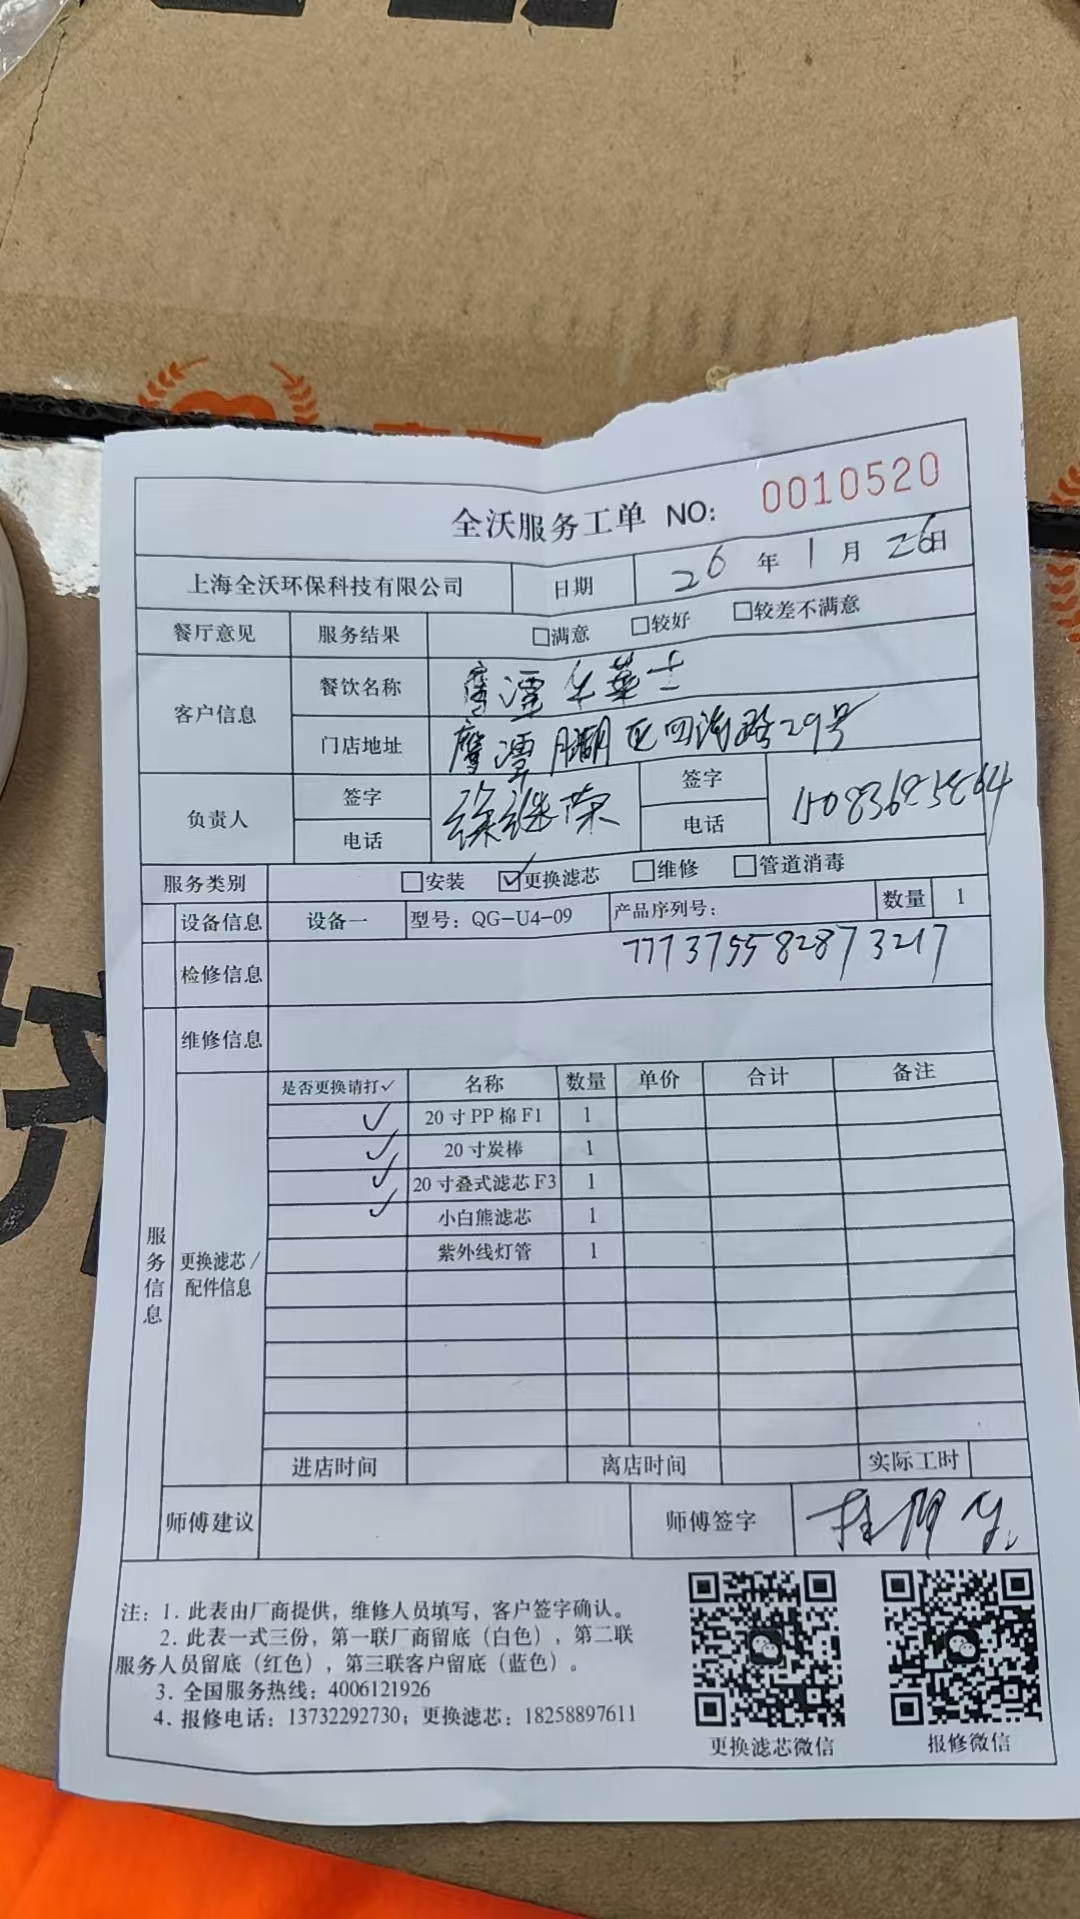 全沃服务工单 NO: 0010520
上海全沃环保科技有限公司 日期 26年1月26日
餐厅意见 服务结果 □满意 □较好 □较差不满意
客户信息 餐饮名称 鹰潭华莱士
门店地址 鹰潭月湖区四海路29号
负责人 签字 徐继荣 签字
电话 电话 15083685864
服务类别 □安装 ☑更换滤芯 □维修 □管道消毒
设备信息 设备一 型号: QG-U4-09 产品序列号: 数量 1
检修信息 777375582873217
维修信息
服务信息 更换滤芯/配件信息
是否更换请打✓ 名称 数量 单价 合计 备注
✓ 20寸PP棉F1 1
✓ 20寸炭棒 1
✓ 20寸叠式滤芯F3 1
✓ 小白熊滤芯 1
紫外线灯管 1
进店时间 离店时间 实际工时
师傅建议 师傅签字
注: 1. 此表由厂商提供，维修人员填写，客户签字确认。
2. 此表一式三份，第一联厂商留底（白色），第二联
服务人员留底（红色），第三联客户留底（蓝色）。
3. 全国服务热线: 4006121926
4. 报修电话: 13732292730; 更换滤芯: 18258897611
更换滤芯微信 报修微信